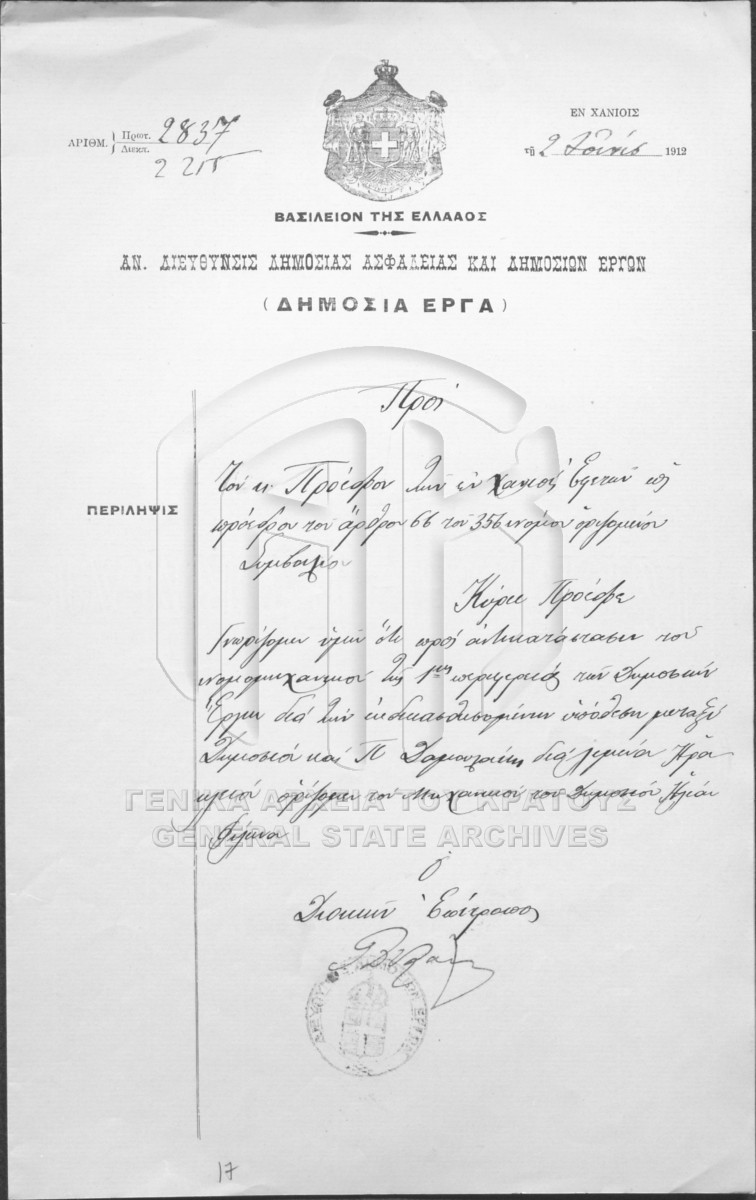 ΑΡΙΘΜ. Πρωτ. 2837
Διεκπ. 2211
ΕΝ ΧΑΝΙΟΙΣ
τῇ 2 1912
ΒΑΣΙΛΕΙΟΝ ΤΗΣ ΕΛΛΑΔΟΣ
ΑΝ. ΔΙΕΥΘΥΝΣΙΣ ΔΗΜΟΣΙΑΣ ΑΣΦΑΛΕΙΑΣ ΚΑΙ ΔΗΜΟΣΙΩΝ ΕΡΓΩΝ
(ΔΗΜΟΣΙΑ ΕΡΓΑ)
Πρός
ΠΕΡΙΛΗΨΙΣ
τον κ. Πρόεδρον των εν Χανίοις Εφετών ως
πρόεδρον του άρθρου 66 του 356 νόμου οριζομένου
Συμβουλίου
Κύριε Πρόεδρε
Γνωρίζομεν υμίν ότι προς αντικατάστασιν του
νομομηχανικού της 1ης περιφερείας των Δημοσίων
Έργων διά την εκδικασθησομένην υπόθεσιν μεταξύ
Δημοσίου και Π. διά λιμένα Ηρα
κλείου ορίζομεν τον μηχανικόν του Δημοσίου Ηλίαν
ΓΕΝΙΚΑ ΑΡΧΕΙΑ ΤΟΥ ΚΡΑΤΟΥΣ
GENERAL STATE ARCHIVES
Ο
Διοικών Επίτροπος
17